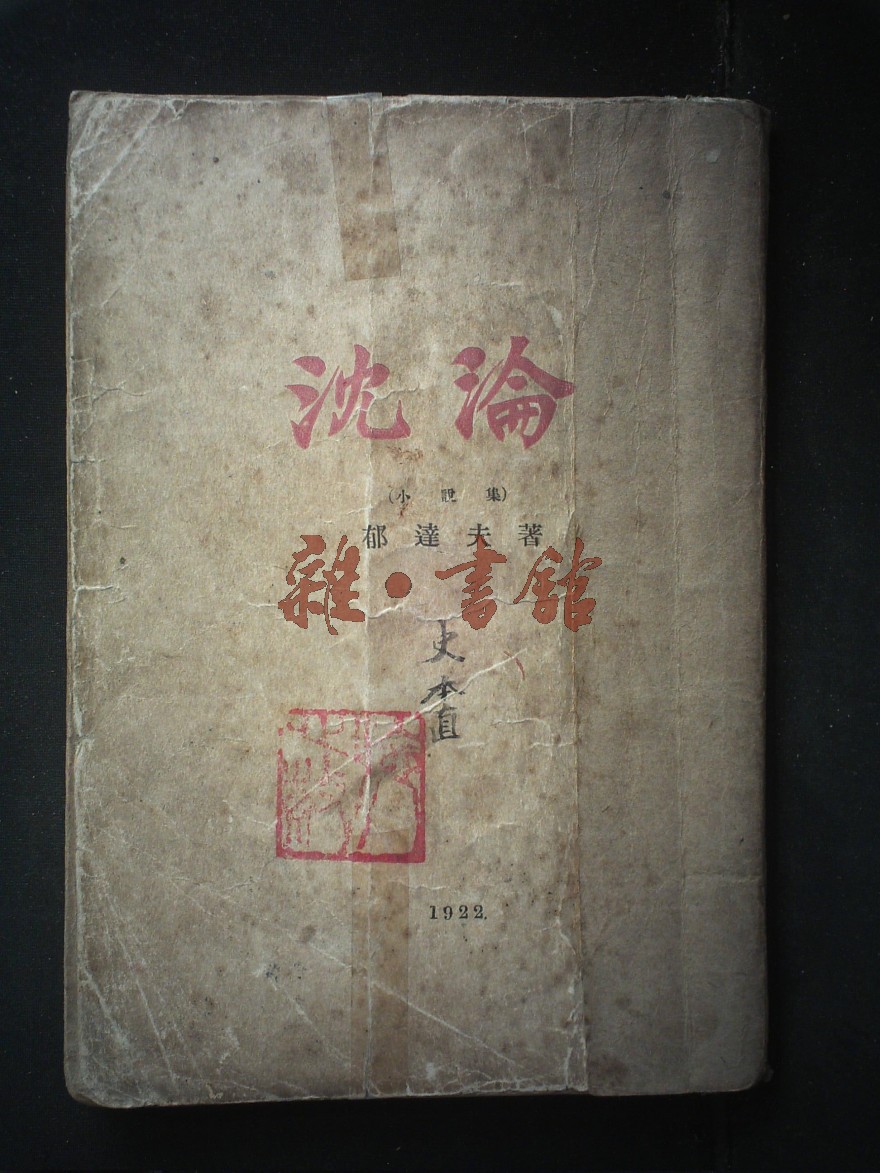 沈淪
(小說集)
郁達夫著
雜·書館
史本直
1922.